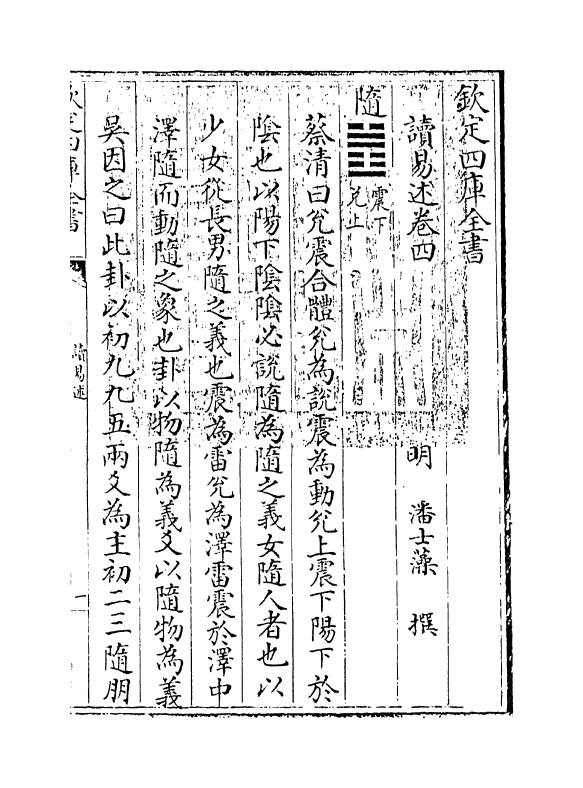 欽定四庫全書
讀易述卷四　明　潘士藻　撰
隨䷐震下兌上
蔡清曰兊震合體兊為說震為動兊上震下陽下於
陰也以陽下陰陰必說隨為隨之義女隨人者也以
少女從長男隨之義也震為雷兊為澤雷震於澤中
澤隨而動隨之象也卦以物隨為義爻以隨物為義
吳因之曰此卦以初九九五兩爻為主初二三隨朋
欽定四庫全書
讀易述
一